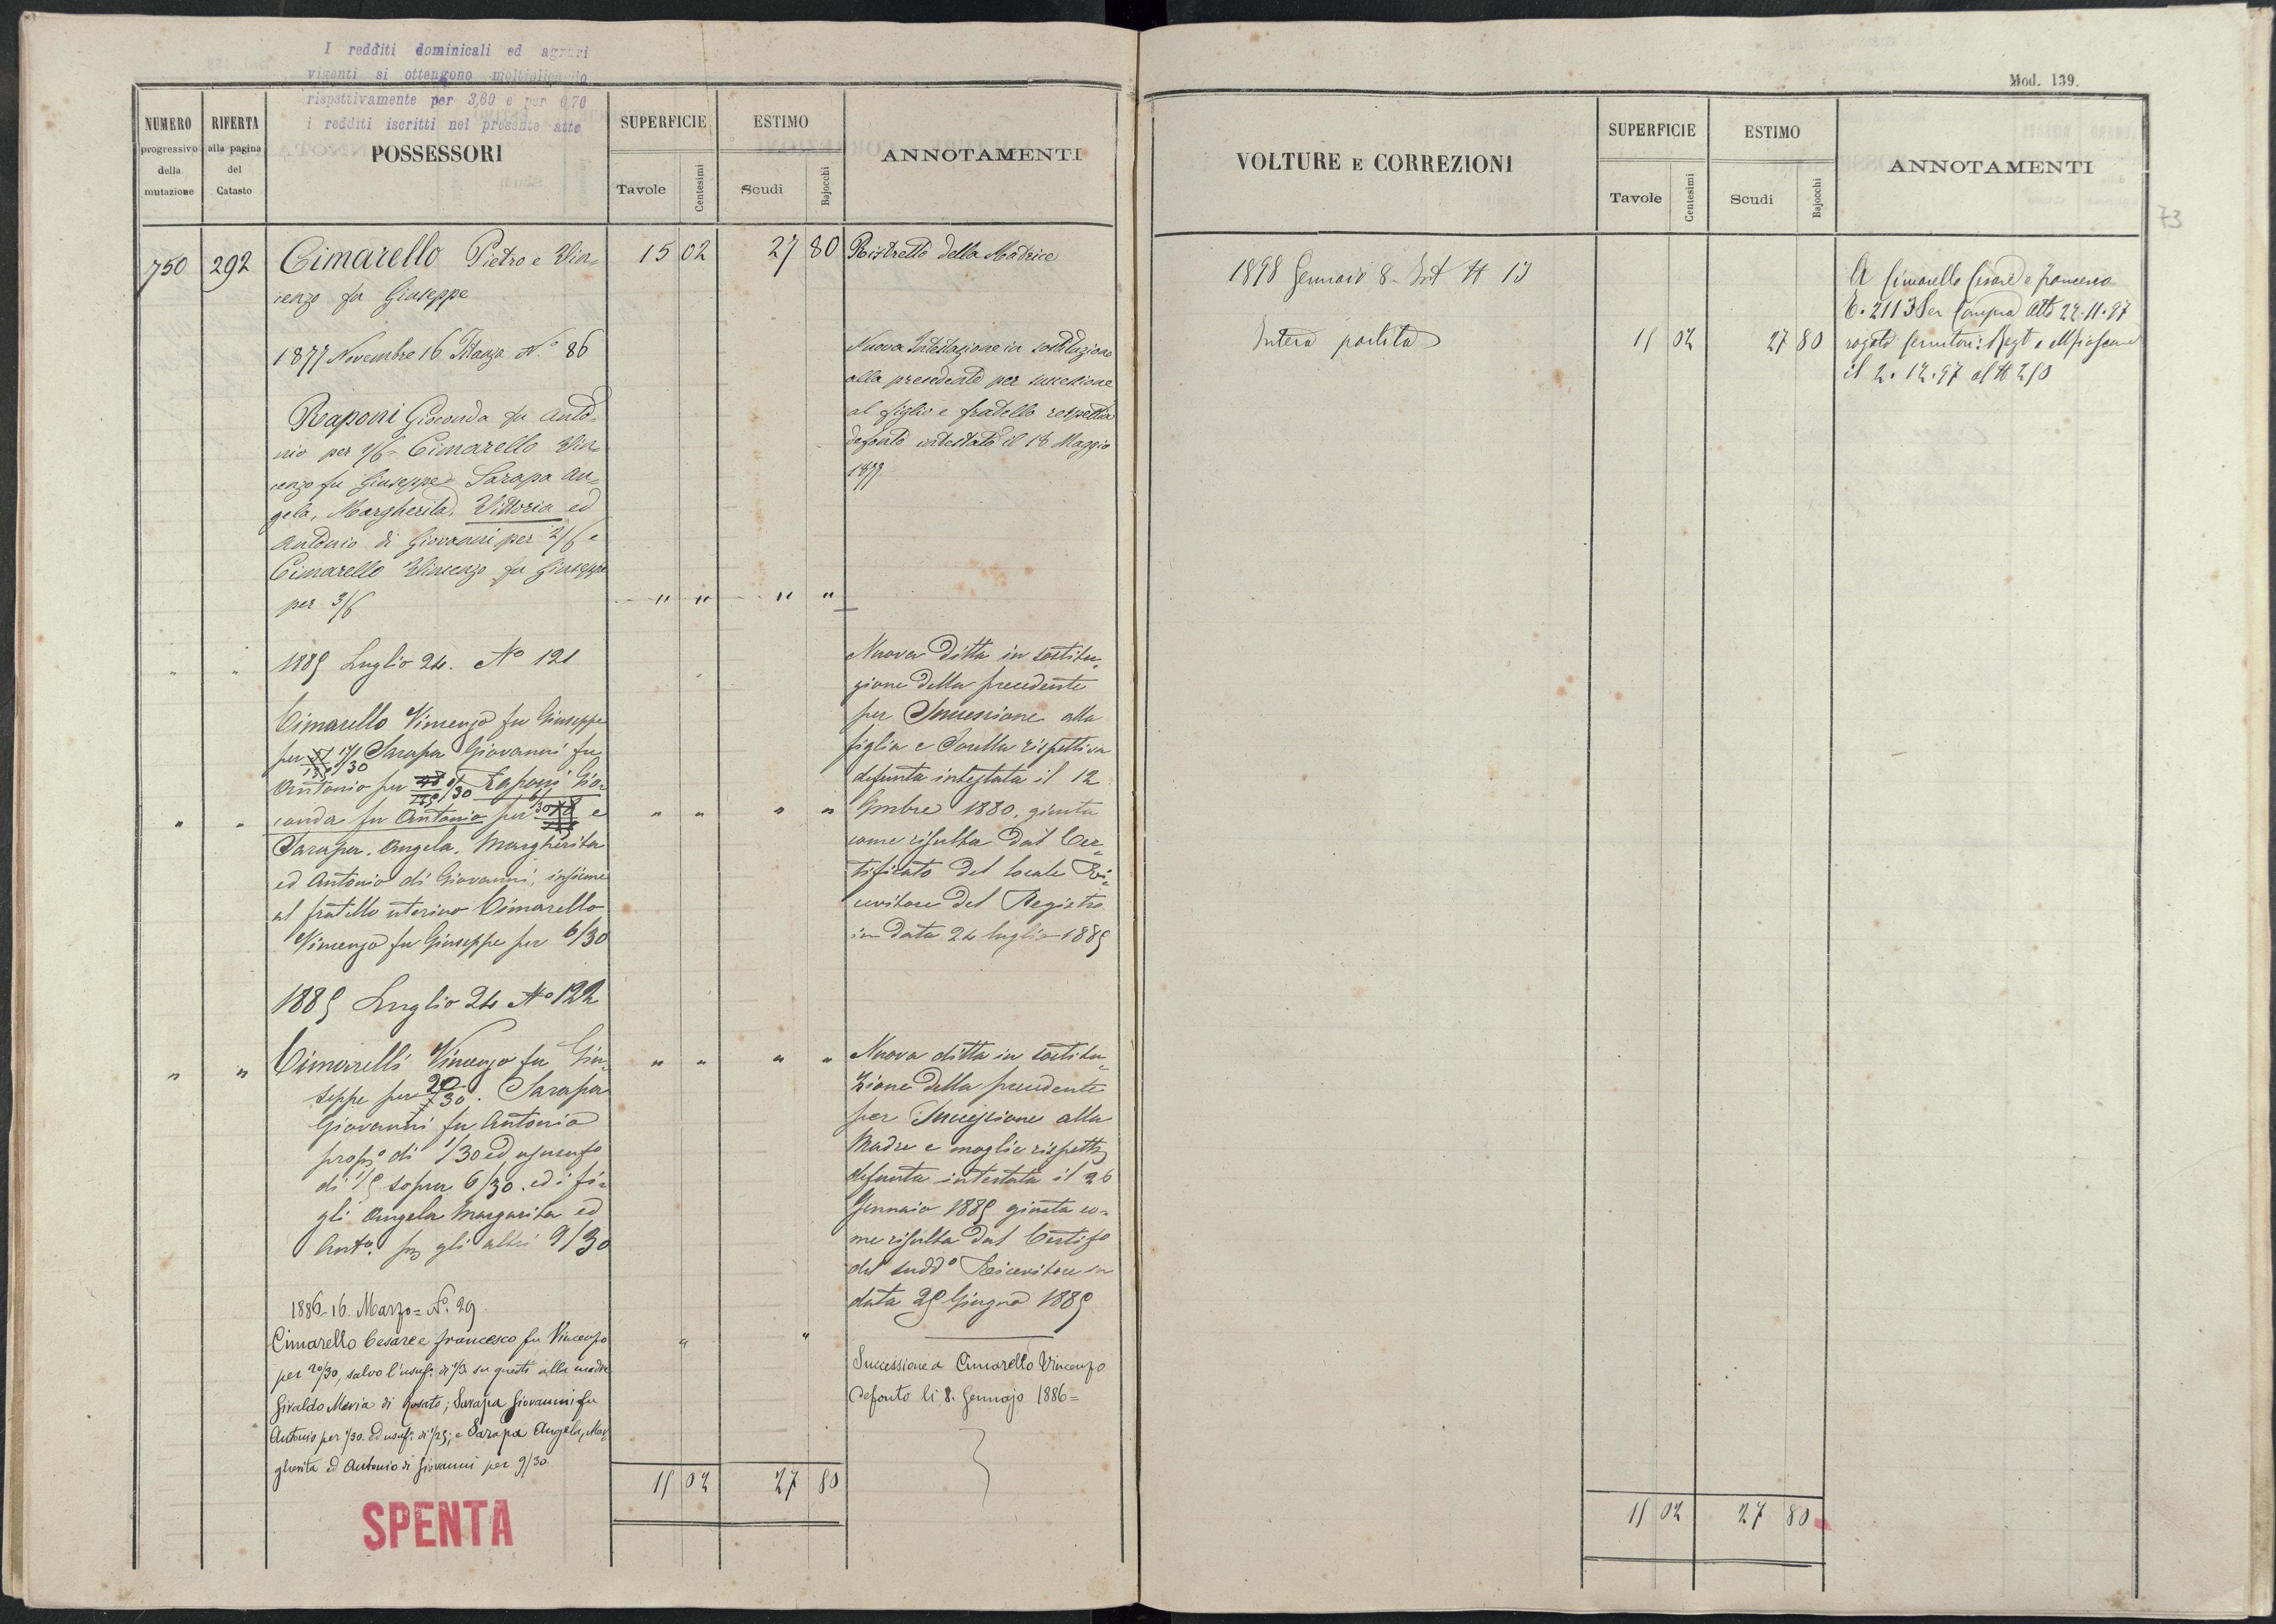 I redditi dominicali ed agrari
vigenti si ottengono moltiplicando
rispettivamente per 3,60 e per 0,70
i redditi iscritti nel presente atto
NUMERO
progressivo
della
mutazione
RIFERTA
alla pagina
del
Catasto
POSSESSORI
SUPERFICIE
Tavole
Centesimi
ESTIMO
Scudi
Bajocchi
ANNOTAMENTI
750 292 Cimarello Pietro e Vin- 15 02 27 80 Ristretto della Madrice
cenzo fu Giuseppe
1877 Novembre 16 Istanza N.º 86
Raponi Gioconda fu Anto-
nio per 1/6 = Cimarello Vin-
cenzo fu Giuseppe Sarapa An-
gela, Margherita, Vittoria ed
Antonio di Giovanni per 2/6 e
Cimarello Vincenzo fu Giuseppe
per 3/6 " " " "
Nuova Intestazione in sostituzione
alla precedente per successione
al figlio e fratello rispettivo
defonto intestato il 18 Maggio
1877
1885 Luglio 24. Nº 121
Cimarello Vincenzo fu Giuseppe
per 17/30 Sarapa Giovanni fu
Antonio per 1/30 Raponi Gio-
conda fu Antonio per 6/30 e
Sarapa. Angela. Margherita
ed Antonio di Giovanni, insieme
al fratello uterino Cimarello
Vincenzo fu Giuseppe per 6/30
" " " " " "
Nuova Ditta in sostitu-
zione della precedente
per Successione alla
figlia e Sorella rispettiva
defunta intestata il 12
9mbre 1880. giusta
come risulta dal Cer-
tificato del locale Ri-
cevitore del Registro
in data 24 luglio 1885
1885 Luglio 24 Nº 122
" " Cimarelli Vincenzo fu Giu- " " " "
seppe per 20/30. Sarapa
Giovanni fu Antonio
propº di 1/30 ed usufo
di 1/5 sopra 6/30. ed i fi-
gli Angela Margarita ed
Antº. per gli altri 9/30
Nuova ditta in sostitu-
zione della precedente
per Successione alla
Madre e moglie rispett
defunta intestata il 26
Gennaio 1885 giusta co-
me risulta dal Certifo
del suddº Ricevitore in
data 25 Giugno 1885
1886-16. Marzo = Nº. 29
Cimarello Cesare e francesco fu Vincenzo " "
per 20/30, salvo l'usuf. di 1/3 su questi alla madre
Giraldo Maria di Rosato; Sarapa Giovanni fu
Antonio per 1/30. ed usuf. di 1/25; e Sarapa Angela, Mar-
gherita ed Antonio di Giovanni per 9/30
Successione a Cimarello Vincenzo
defonto li 8. Gennajo 1886 =
15 02 27 80
SPENTA
Mod. 139.
VOLTURE E CORREZIONI
SUPERFICIE
Tavole
Centesimi
ESTIMO
Scudi
Bajocchi
ANNOTAMENTI
73
1898 Gennaio 8. Ist # 13
Intera partita 15 02 27 80
A Cimarello Cesare e francesco
C. 2113 Per Compra Atto 22.11.97
rogato
il 2. 12. 97 al # 250
15 02 27 80